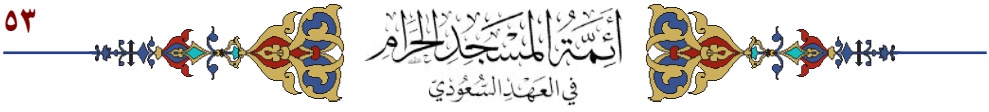 ٥٣
أَئِمَّةُ المَسْجِدِ الحَرَامِ
فِي العَهْدِ السُّعُودِيِّ